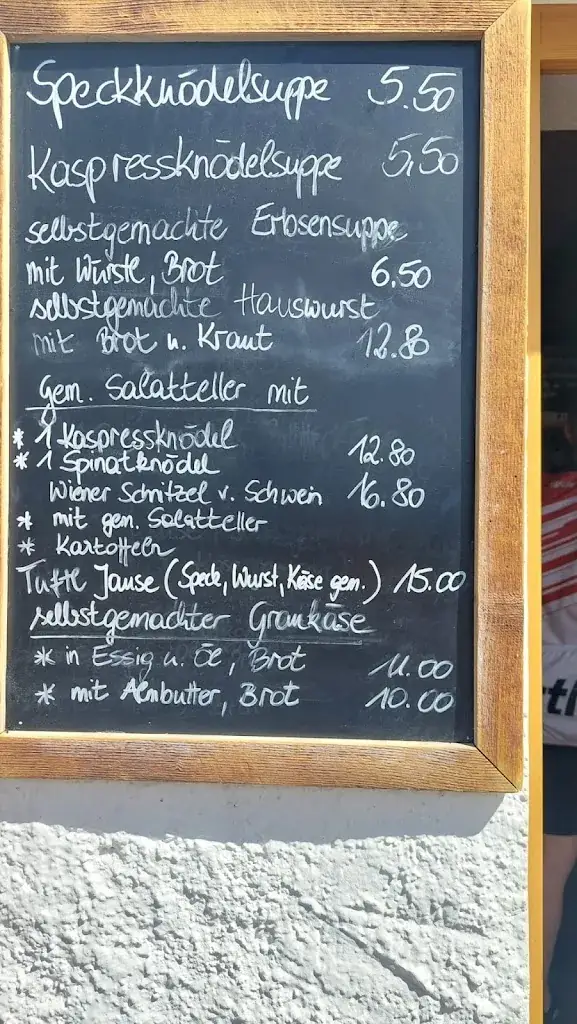 Speckknödelsuppe 5.50
Kaspressknödelsuppe 5,50
selbstgemachte Erbsensuppe
mit Würstl, Brot 6.50
selbstgemachte Hauswurst
mit Brot u. Kraut 12.80
gem. Salatteller mit
* 1 Kaspressknödel 12.80
* 1 Spinatknödel
Wiener Schnitzel v. Schwein 16.80
* mit gem. Salatteller
* Kartoffeln
Jause (Speck, Wurst, Käse gem.) 15.00
selbstgemachter Graukäse
* in Essig u. Öl, Brot 11.00
* mit Almbutter, Brot 10.00